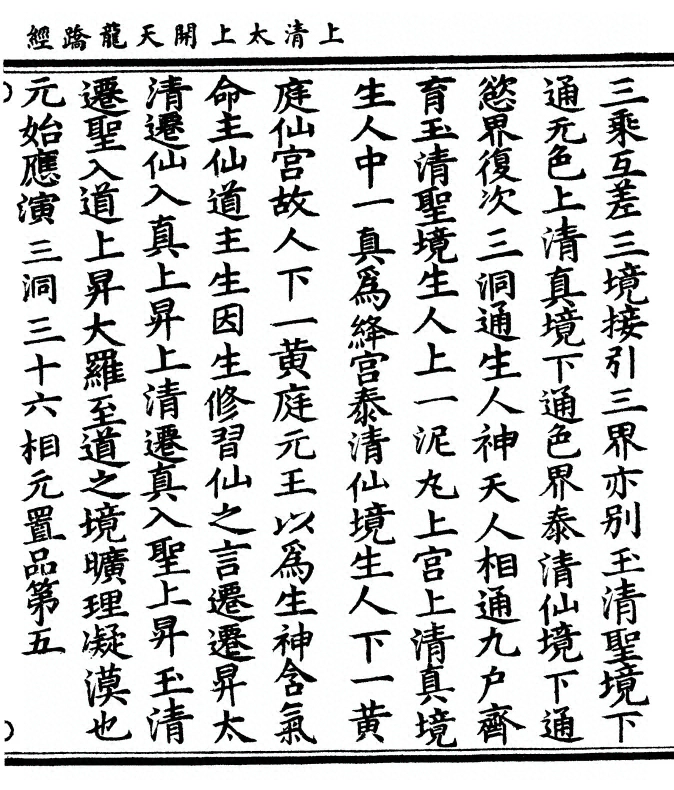 上清太上開天龍蹻經
三乘互差三境接引三界亦别玉清聖境下
通无色上清真境下通色界泰清仙境下通
慾界復次三洞通生人神天人相通九户齊
育玉清聖境生人上一泥丸上宫上清真境
生人中一真爲絳宫泰清仙境生人下一黄
庭仙宫故人下一黄庭元王以爲生神含氣
命主仙道主生因生修習仙之言遷遷昇太
清遷仙入真上昇上清遷真入聖上昇玉清
遷聖入道上昇大羅至道之境曠理凝漠也
元始應演三洞三十六相元置品第五